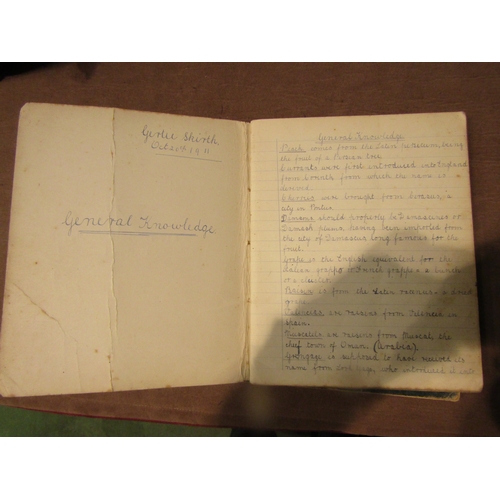 Girlie Skirth,
Oct 21st 19
General Knowledge
General Knowledge
Peach comes from the Latin persicum, being
the fruit of a Persian tree.
Currants were first introduced into England
from Corinth from which the name is
derived.
Cherries were brought from Cerasus, a
city in Pontus.
Damsons should properly be Damascenes or
Damask plums, having been imported from
the city of Damascus long famous for the
fruit.
Grape is the English equivalent for the
Italian grappo a bunch
or a cluster.
Raisin is from the Latin racemus a dried
grape.
are raisins from in
Spain.
Muscatels are raisins from Muscat, the
chief town of Oman. (Arabia).
Greengage is supposed to have received its
name from Lord Gage, who introduced it into